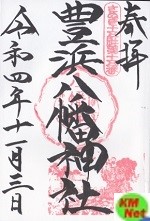 奉拝
豊浜八幡神社
令和四年十一月三日
KM
Net